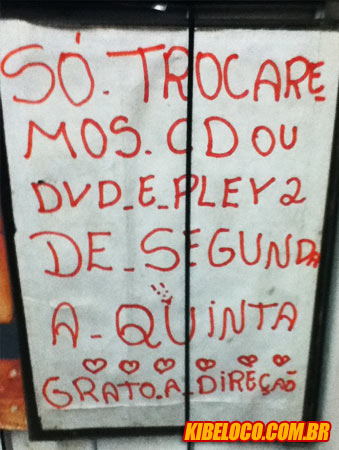 SÓ.TROCARE
MOS.CD OU
DVD_E_PLEY 2
DE_SEGUNDA
A_QÜINTA
GRATO_A_DIREÇÃO
KIBELOCO.COM.BR